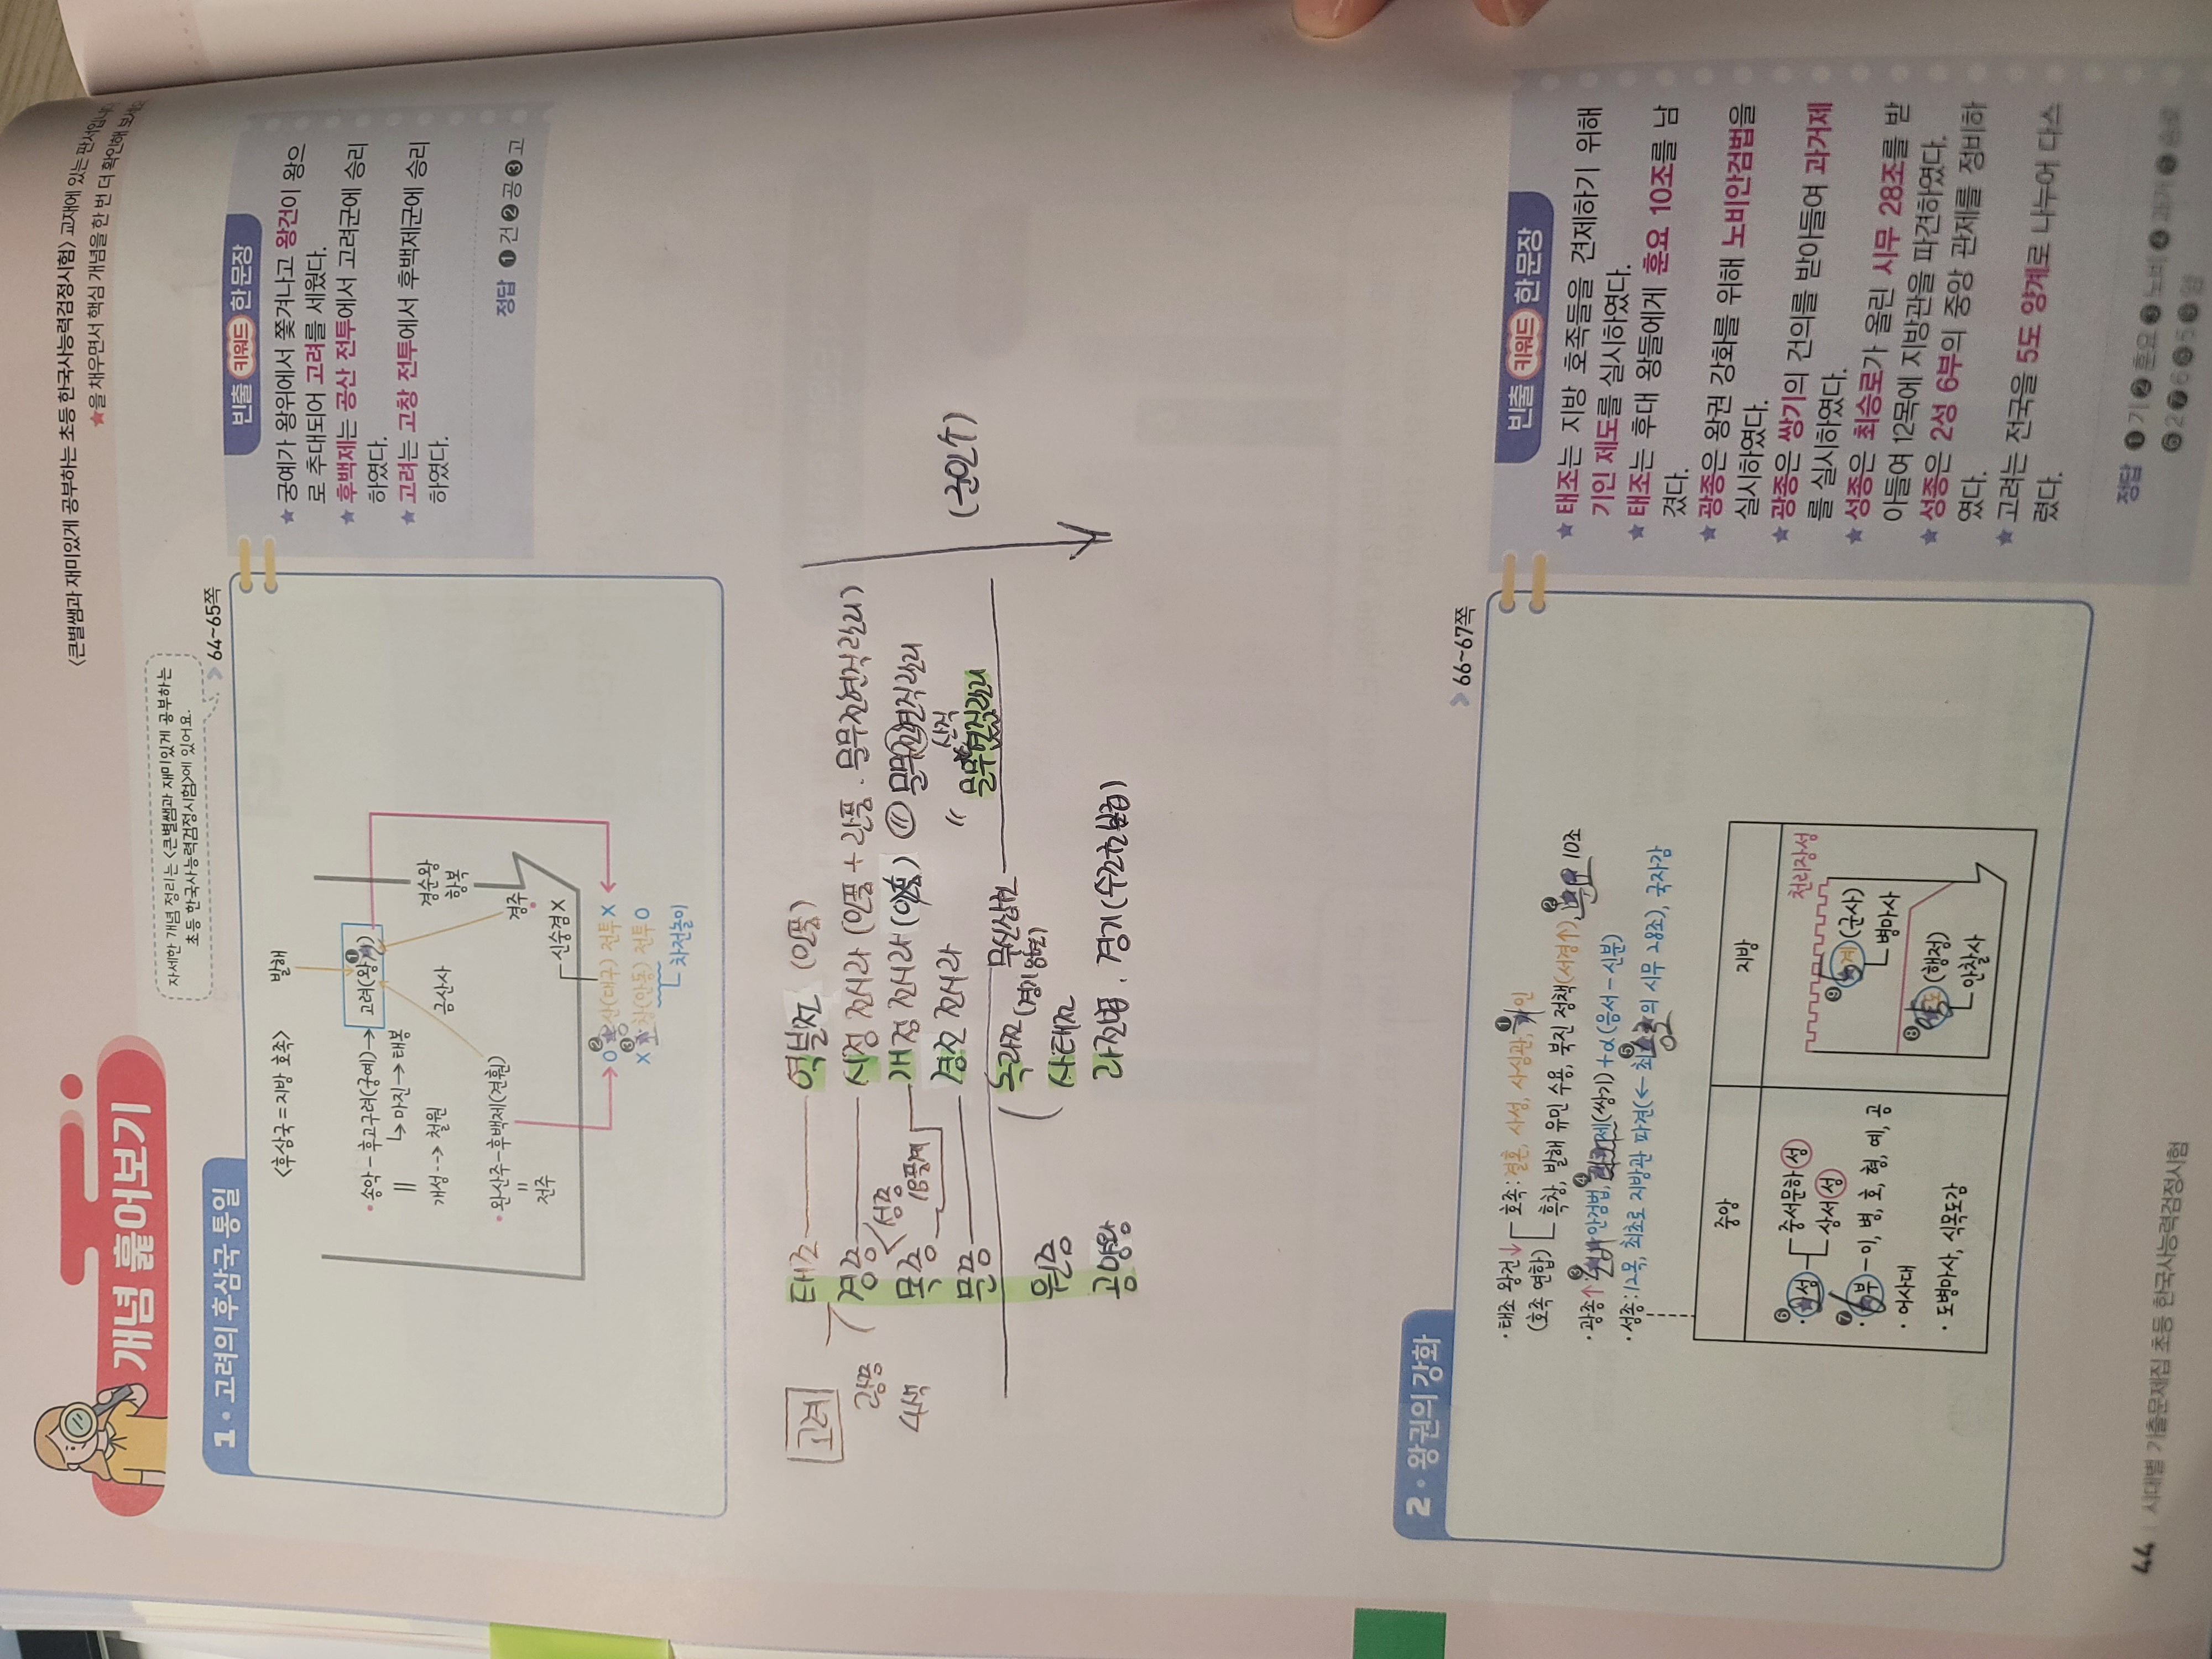 <큰별쌤과 재미있게 공부하는 초등 한국사능력검정시험> 교재에 있는 판서입니다
★을 채우면서 핵심 개념을 한 번 더 확인해 보세요
개념 훑어보기
자세한 개념 정리는 <큰별쌤과 재미있게 공부하는
초등 한국사능력검정시험>에 있어요.
1 · 고려의 후삼국 통일
64~65쪽
<후삼국 = 지방 호족>
발해
· 송악 – 후고구려(궁예) → 고려(왕❶건)
|| ↳ 마진 → 태봉
개성 --> 철원
경순왕
항복
금산사
경주
· 완산주 – 후백제(견훤)
||
전주
신숭겸 X
O ❷공산(대구) 전투 X
X ❸고창(안동) 전투 O
차전놀이
빈출 키워드 한 문장
★ 궁예가 왕위에서 쫓겨나고 왕건이 왕으
로 추대되어 고려를 세웠다.
★ 후백제는 공산 전투에서 고려군에 승리
하였다.
★ 고려는 고창 전투에서 후백제군에 승리
하였다.
정답 ❶ 건 ❷ 공 ❸ 고
고려
태조 역분전 (인품)
광종
4색
경종 시정 전시과 (인품 + 관품 · 문무전현직관리)
성종
18품계
목종 개정 전시과 (인품) 문무전현직관리
산직
문종 경정 전시과 〃 문무현직관리
무신집권
(녹과전 (경기 8현)
원종 사태전
공양왕 과전법 · 경기
2 · 왕권의 강화
66~67쪽
· 태조 왕건↓ 호족 : 결혼, 사성, 사심관, ❶기인
(호족 연합) 흑창, 발해 유민 수용, 북진 정책(서경↑), ❷훈요 10조
· 광종↑ ❸노비안검법, ❹과거제(쌍기) + α(음서 – 신분)
· 성종 : 12목, 최초로 지방관 파견(← 최❺승로의 시무 28조), 국자감
중앙
지방
❻ · 2성 중서문하성
상서성
❼ · 6부 – 이, 병, 호, 형, 예, 공
· 어사대
· 도병마사, 식목도감
천리장성
❾ 양계 (군사)
병마사
❽ 5도 (행정)
안찰사
빈출 키워드 한 문장
★ 태조는 지방 호족들을 견제하기 위해
기인 제도를 실시하였다.
★ 태조는 후대 왕들에게 훈요 10조를 남
겼다.
★ 광종은 왕권 강화를 위해 노비안검법을
실시하였다.
★ 광종은 쌍기의 건의를 받아들여 과거제
를 실시하였다.
★ 성종은 최승로가 올린 시무 28조를 받
아들여 12목에 지방관을 파견하였다.
★ 성종은 2성 6부의 중앙 관제를 정비하
였다.
★ 고려는 전국을 5도 양계로 나누어 다스
렸다.
정답 ❶ 기 ❷ 훈요 ❸ 노비 ❹ 과거 ❺ 승로
❻ 2 ❼ 6 ❽ 5 ❾ 양
44 | 시대별 기출문제집 초등 한국사능력검정시험